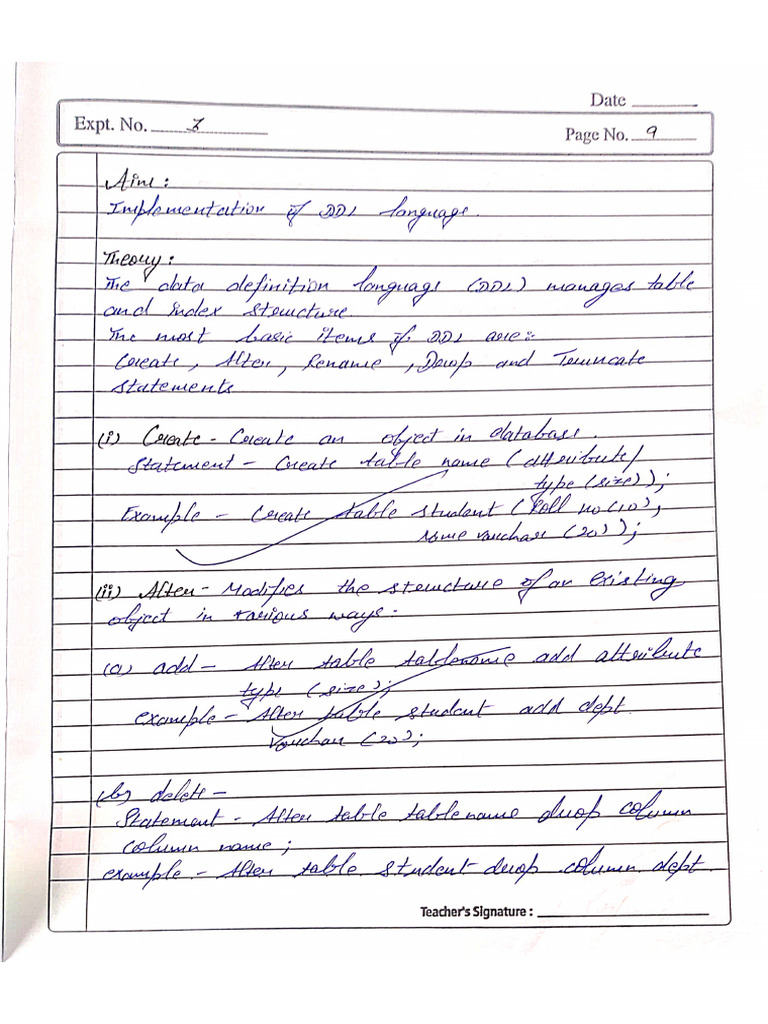 Date
Expt. No.
Page No. 9
Aim:
Implementation of DDL language.
Theory:
The data definition language (DDL) manages table
and index structure.
The most basic items of DDL are:
Create, Alter, Rename, Drop and Truncate
statements
(i) Create - Create an object in database.
Statement - Create table name (attribute/
type (size));
Example - Create table student (Roll no (10),
varchar (20));
(ii) Alter - Modifies the structure of an existing
object in various ways.
(a) add - Alter table tablename add attribute
type (size);
example - Alter table student add dept
varchar (20);
(b) delete -
Statement - Alter table table name drop column
column name;
example - Alter table student drop column dept.
Teacher's Signature :